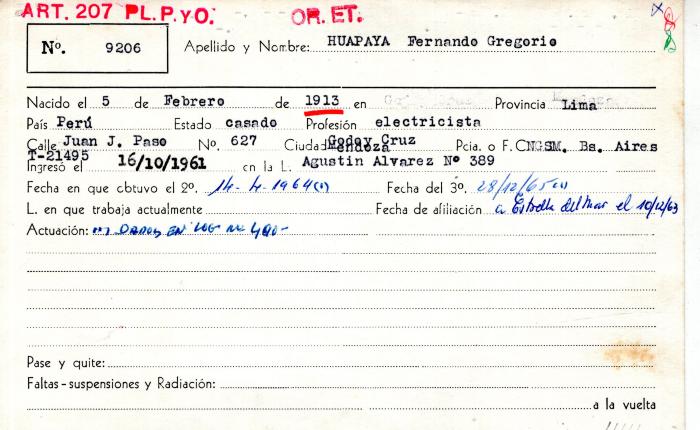 ART. 207 PL. P. y O. OR. ET.
Nº. 9206 Apellido y Nombre: HUAPAYA Fernando Gregorio
Nacido el 5 de Febrero de 1913 en Provincia Lima
País Perú Estado casado Profesión electricista
Calle Juan J. Paso Nº. 627 Ciudad Godoy Cruz Mendoza Pcia. o F.C. NGSM. Bs. Aires
T-21495
Ingresó el 16/10/1961 en la L. Agustin Alvarez Nº 389
Fecha en que obtuvo el 2º. 14-4-1964(1) Fecha del 3º. 28/12/65(1)
L. en que trabaja actualmente Fecha de afiliación a Estrella del Mar el 10/12/63
Actuación: (1) DADOS EN LOG Nº 490-
Pase y quite:
Faltas-suspensiones y Radiación:
a la vuelta